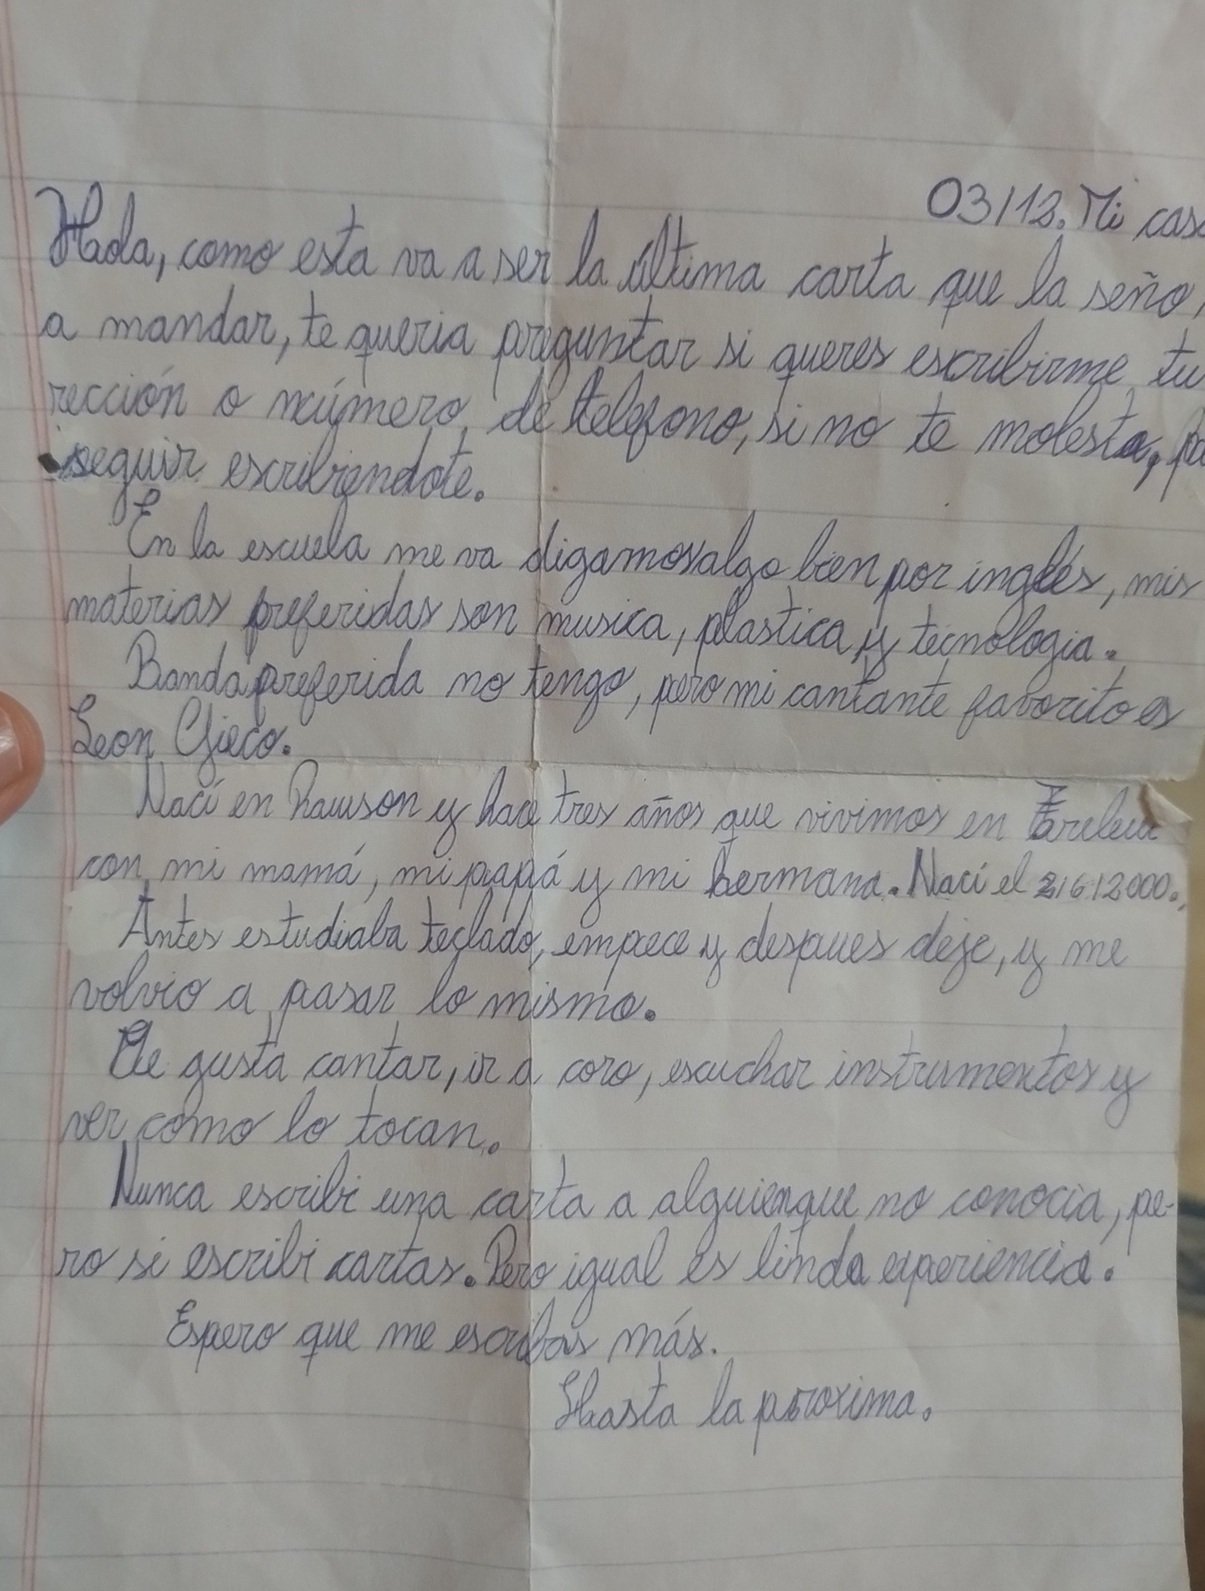 03/12. Mi casa
Hola, como esta va a ser la última carta que la seño,
a mandar, te queria preguntar si queres escribirme tu
rección o número de telefono, si no te molesta, pa
seguir escribiendote.
En la escuela me va digamos algo bien por inglés, mis
materias preferidas son musica, plastica y tecnologia.
Banda preferida no tengo, pero mi cantante favorito es
Leon Gieco.
Naci en Rawson y hace tres años que vivimos en Trelew
con mi mamá, mi papá y mi hermana. Naci el 2/6/2000.
Antes estudiaba teclado, empece y despues deje, y me
volvio a pasar lo mismo.
Me gusta cantar, ir a coro, escuchar instrumentos y
ver como lo tocan.
Nunca escribi una carta a alguien que no conocia, pe-
ro si escribi cartas. Pero igual es linda experiencia.
Espero que me escribas más.
Hasta la proxima.